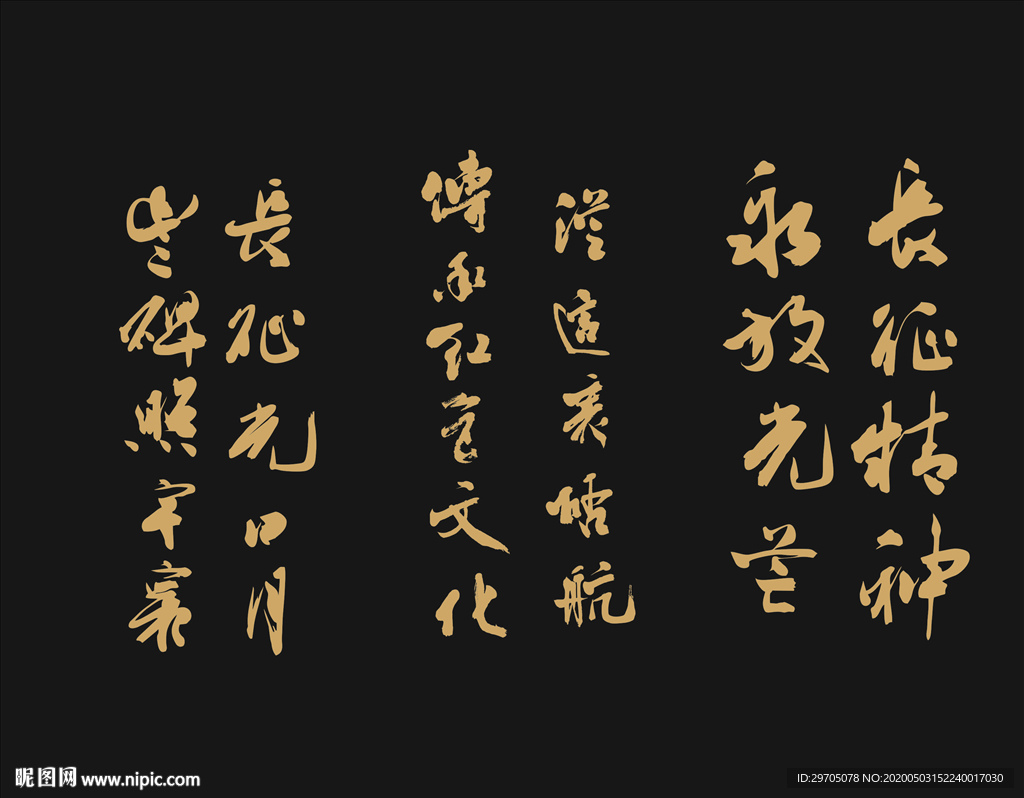 長征精神
永放光芒
從這裏啓航
傳承紅色文化
長征光日月
豐碑照宇寰
昵图网 www.nipic.com
ID:29705078 NO:20200503152240017030